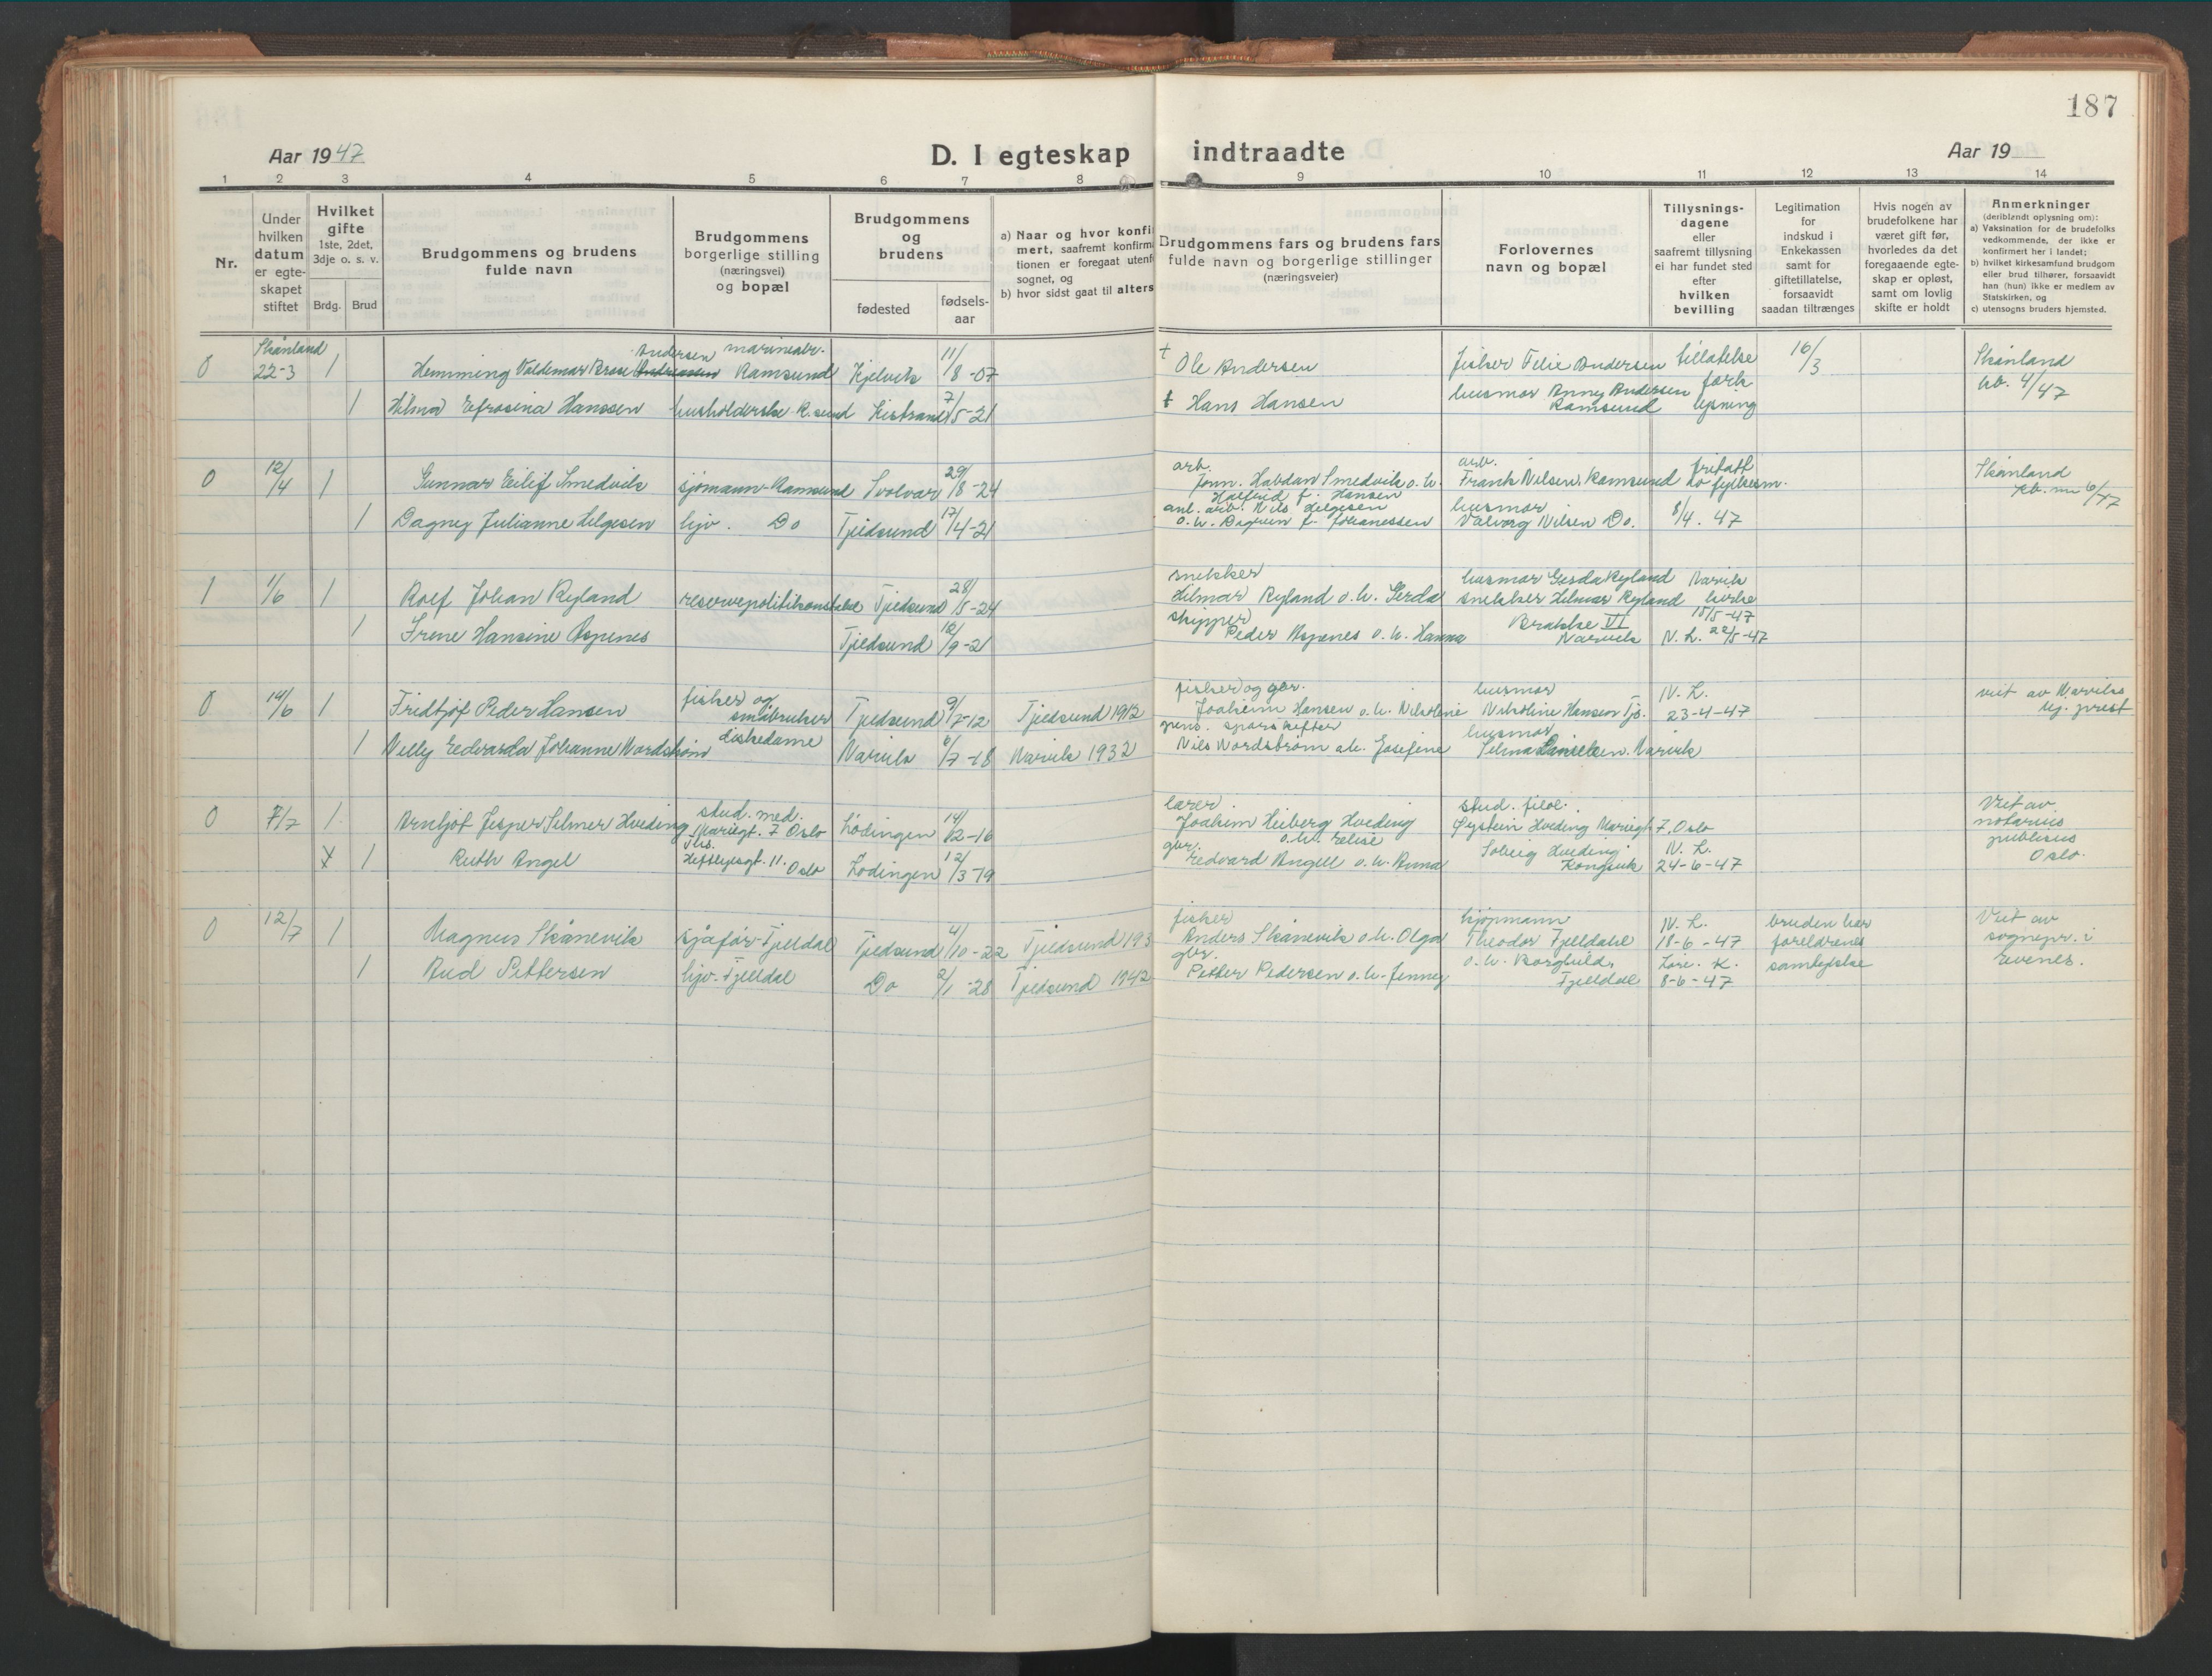 187
Aar 1947
D. I egteskap indtraadte
Aar 19
1 2 3 4 5 6 7 8 9 10 11 12 13 14
Nr.
Under
hvilken
datum
er egte-
skapet
stiftet
Hvilket
gifte
1ste, 2det,
3dje o. s. v.
Brdg. Brud
Brudgommens og brudens
fulde navn
Brudgommens
borgerlige stilling
(næringsvei)
og bopæl
Brudgommens
og
brudens
fødested
fødsels-
aar
a) Naar og hvor konfi
mert, saafremt konfirma
tionen er foregaat utenf
sognet, og
b) hvor sidst gaat til alters
Brudgommens fars og brudens fars
fulde navn og borgerlige stillinger
(næringsveier)
Forlovernes
navn og bopæl
Tillysnings-
dagene
eller
saafremt tillysning
ei har fundet sted
efter
hvilken
bevilling
Legitimation
for
indskud i
Enkekassen
samt for
giftetillatelse,
forsaavidt
saadan tiltrænges
Hvis nogen av
brudefolkene har
været gift før,
hvorledes da det
foregaaende egte-
skap er opløst,
samt om lovlig
skifte er holdt
Anmerkninger
(deriblandt oplysning om):
a) Vaksination for de brudefolks
vedkommende, der ikke er
konfirmert her i landet;
b) hvilket kirkesamfund brudgom
eller brud tilhører, forsaavidt
han (hun) ikke er medlem av
Statskirken, og
c) utensogns bruders hjemsted.
Skånland
0 22-3 1
Hemming Valdemar
Andersen
marinearb.
Ramsund
Kjelvik
11/8-07
† Ole Andersen
fisker Felix Andersen
husmor Anny Andersen
Ramsund
tillatelse
fork
lysning
16/3
Skånland
kb. 4/47
1 Hilma Efrosina Hanssen
husholderske - R.sund
Kistrand
7/5-21
† Hans Hansen
0 12/4 1
Gunnar Eilif Smedvik
sjømann-Ramsund
Svolvær
29/8-24
arb.
Halvdan Smedvik o.h.
f. Hansen
arb.
Frank Nilsen, Ramsund
husmor
Valborg Nilsen Do.
fritatt
fylkesm.
8/4. 47
Skånland
kb. nr 6/47
1 Dagny Julianne Helgesen
hjv. Do
Tjeldsund
17/4-21
anl. arb. Nils Helgesen
o.h. Dagrun f. Johanessen
1 1/6 1
Rolf Johan Ryland
reservepolitikonstabel
Tjeldsund
28/5-24
snekker
Hilmar Ryland o.h. Gerda
husmor Gerda Ryland
snekker Hilmar Ryland
Brakke VI
Narvik
Narvik
kirke
15/5-47
N. L. 22/5-47
1 Irene Hansine Aspenes
Tjeldsund
18/9-21
skipper
Peder Aspenes o.h. Hanna
0 14/6 1
Fridtjof Peder Hansen
fisker og
småbruker
Tjeldsund
9/7-12
Tjeldsund 1912
fisker og gbr.
Joakim Hansen o.h. Nikoline
husmor
Nikoline Hansen Tjs.
N. L.
23-4-47
viet av Narviks
sg. prest
1 Nelly Edvarda Johanne Nordstrøm
diskedame
Narvik
6/7-18
Narvik 1932
pens. sporskifter
Nils Nordstrøm o.h. Josefine
husmor
Selma Danielsen. Narvik
0 7/7 1
Arnljot Jesper Selmer Hveding
stud. med.
Mariegt. 7 Oslo
Lødingen
14/12-16
lærer.
Joakim Heiberg Hveding
o.h. Elise
stud. filol.
Øystein Hveding Mariegt 7, Oslo
Solveig Hveding
Kongsvik
N. L.
24-6-47
Viet av
notarius
publicus
Oslo.
1 Ruth Angel
Heftyesgt. 11. Oslo
Lødingen
12/3-19
gbr.
Edvard Angell o.h. Anna
0 12/7 1
Magnus Skånevik
sjåfør-Fjelldal
Tjeldsund
4/10-22
Tjeldsund 193
fisker
Anders Skånevik o.h. Olga
kjøpmann
Theodor Fjelldahl
o.h. Borghild,
Fjelldal
N. L.
18-6-47
K.
8-6-47
bruden har
foreldrenes
samtykke
Viet av
sognepr. i
Evenes.
1 Aud Pettersen
hjv. Fjelldal
Do
2/1-28
Tjeldsund 1942
gbr.
Petter Pedersen o.h. Jenny